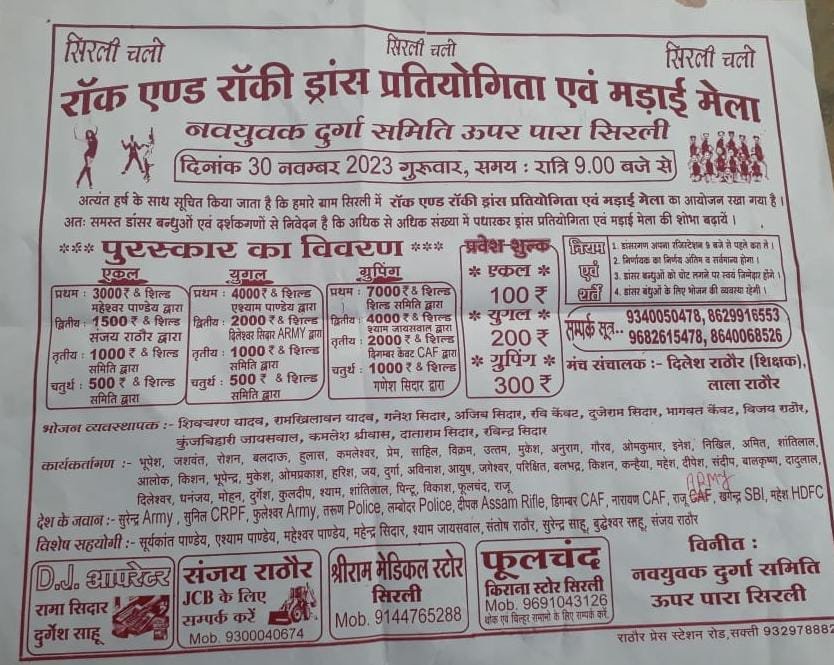 सिरली चलो सिरली चलो सिरली चलो
रॉक एण्ड रॉकी ड्रांस प्रतियोगिता एवं मड़ाई मेला
नवयुवक दुर्गा समिति ऊपर पारा सिरली
दिनांक 30 नवम्बर 2023 गुरूवार, समय : रात्रि 9.00 बजे से
अत्यंत हर्ष के साथ सूचित किया जाता है कि हमारे ग्राम सिरली में रॉक एण्ड रॉकी ड्रांस प्रतियोगिता एवं मड़ाई मेला का आयोजन रखा गया है ।
अतः समस्त डांसर बन्धुओं एवं दर्शकगणों से निवेदन है कि अधिक से अधिक संख्या में पधारकर ड्रांस प्रतियोगिता एवं मड़ाई मेला की शोभा बढ़ायें ।
*** पुरस्कार का विवरण ***
एकल
प्रथम : 3000₹ & शिल्ड
महेश्वर पाण्डेय द्वारा
द्वितीय : 1500 ₹ & शिल्ड
संजय राठौर द्वारा
तृतीय : 1000 ₹ & शिल्ड
समिति द्वारा
चतुर्थ : 500 ₹ & शिल्ड
समिति द्वारा
युगल
प्रथम : 4000₹ & शिल्ड
एश्याम पाण्डेय द्वारा
द्वितीय : 2000 ₹ & शिल्ड
दिलेश्वर सिदार ARMY द्वारा
तृतीय : 1000 ₹ & शिल्ड
समिति द्वारा
चतुर्थ : 500 ₹ & शिल्ड
समिति द्वारा
ग्रुपिंग
प्रथम : 7000₹ & शिल्ड
शिल्ड समिति द्वारा
द्वितीय : 4000 ₹ & शिल्ड
श्याम जायसवाल द्वारा
तृतीय : 2000 ₹ & शिल्ड
दिगम्बर केवट CAF द्वारा
चतुर्थ : 1000 ₹ & शिल्ड
गणेश सिदार द्वारा
प्रवेश शुल्क
* एकल *
100 ₹
* युगल *
200 ₹
* ग्रुपिंग *
300 ₹
नियम एवं शर्ते
1. डांसरगण अपना रजिस्टेशन 9 बजे से पहले करा ले ।
2. निर्णायक का निर्णय अंतिम व सर्वमान्य होगा ।
3. डांसर बन्धुओं को चोट लगने पर स्वयं जिम्मेदार होंगे ।
4. डांसर बंधुओं के लिए भोजन की व्यवस्था रहेगी ।
सम्पर्क सूत्र.. 9340050478, 8629916553
9682615478, 8640068526
मंच संचालक :- दिलेश राठौर (शिक्षक),
लाला राठौर
भोजन व्यवस्थापक :- शिवचरण यादव, रामखिलावन यादव, गनेश सिदार, अजिब सिदार, रवि केंवट, दुजेराम सिदार, भागवत केंवट, विजय राठौर,
कुंजबिहारी जायसवाल, कमलेश श्रीवास, दाताराम सिदार, रबिन्द्र सिदार
कार्यकर्तागण :- भूपेश, जशवंत, रोशन, बलदाऊ, हुलास, कमलेश्वर, प्रेम, साहिल, विक्रम, उत्तम, मुकेश, अनुराग, गौरव, ओमकुमार, इनेश, निखिल, अमित, शांतिलाल,
आलोक, किशन, भूपेन्द्र, मुकेश, ओमप्रकाश, हरिश, जय, दुर्गा, अविनाश, आयुष, जगेश्वर, परिक्षित, बलभद्र, किशन, कन्हैया, महेश, दीपेश, संदीप, बालकृष्ण, दादुलाल,
दिलेश्वर, धनंजय, मोहन, दुर्गेश, कुलदीप, श्याम, शांतिलाल, पिन्टू, विकाश, फूलचंद, राजू
ARMY
देश के जवान :- सुरेन्द्र Army, सुनिल CRPF, फुलेश्वर Army, तरूण Police, लम्बोदर Police, दीपक Assam Rifle, डिगम्बर CAF, नारायण CAF, राजू CAF, खगेन्द्र SBI, महेश HDFC
विशेष सहयोगी :- सूर्यकांत पाण्डेय, एश्याम पाण्डेय, महेश्वर पाण्डेय, महेन्द्र सिदार, श्याम जायसवाल, संतोष राठौर, सुरेन्द्र साहू, बुद्धेश्वर साहू, संजय राठौर
D.J. आपरेटर
रामा सिदार
दुर्गेश साहू
संजय राठौर
JCB के लिए
सम्पर्क करें
Mob. 9300040674
श्रीराम मेडिकल स्टोर
सिरली
Mob. 9144765288
फूलचंद
किराना स्टोर सिरली
Mob. 9691043126
थोक एवं चिल्हर सामानो के लिए सम्पर्क करें
विनीत :
नवयुवक दुर्गा समिति
ऊपर पारा सिरली
राठौर प्रेस स्टेशन रोड,सक्ती 932978882